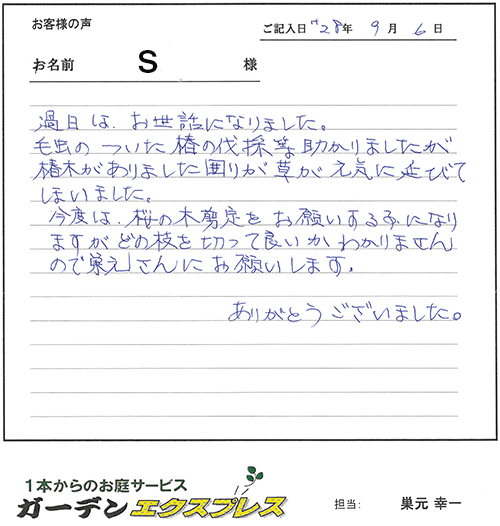 お客様の声
ご記入日 H28年 9月 6日
お名前 S 様
過日は、お世話になりました。
毛虫のついた椿の伐採等助かりましたが
椿木がありました囲りが草が元気に延びて
しまいました。
今度は、桜の木剪定をお願いする事になり
ますがどの枝を切って良いかわかりません
ので巣元さんにお願いします。
ありがとうございました。
1本からのお庭サービス
ガーデンエクスプレス
担当: 巣元 幸一